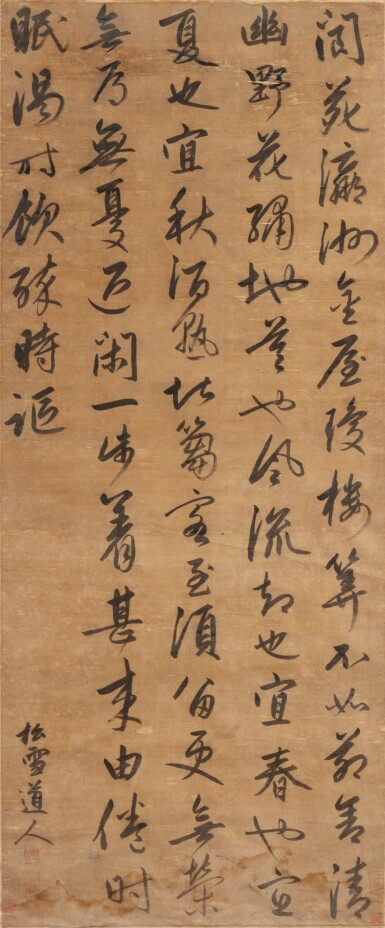 閬苑瀛洲金屋瓊樓算不如茅舍清
幽野花繡地莫也風流却也宜春也宜
夏也宜秋酒熟堪篘客至須留更無榮
無辱無憂退閑一步着甚來由倦時
眠渴時飲醉時謳
松雪道人